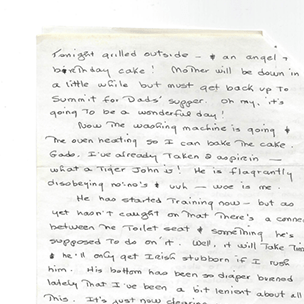 Tonight grilled outside - & an angel
birthday cake! Mother will be down in
a little while but must get back up to
Summit for Dads' supper. Oh my, it's
going to be a wonderful day!
Now the washing machine is going &
the oven heating so I can bake the cake.
Gads, I've already taken 2 aspirin -
what a Tiger John is! He is flagrantly
disobeying no-no's & uuh - woe is me.
He has started Training now - but as
yet hasn't caught on that There's a conne
between the Toilet seat & something he's
supposed To do on it. Well, it will Take Time
& he'll only get Irish stubborn if I rush
him. His bottom has been so diaper burned
lately That I've been a bit lenient about all
This. It's just now clearing